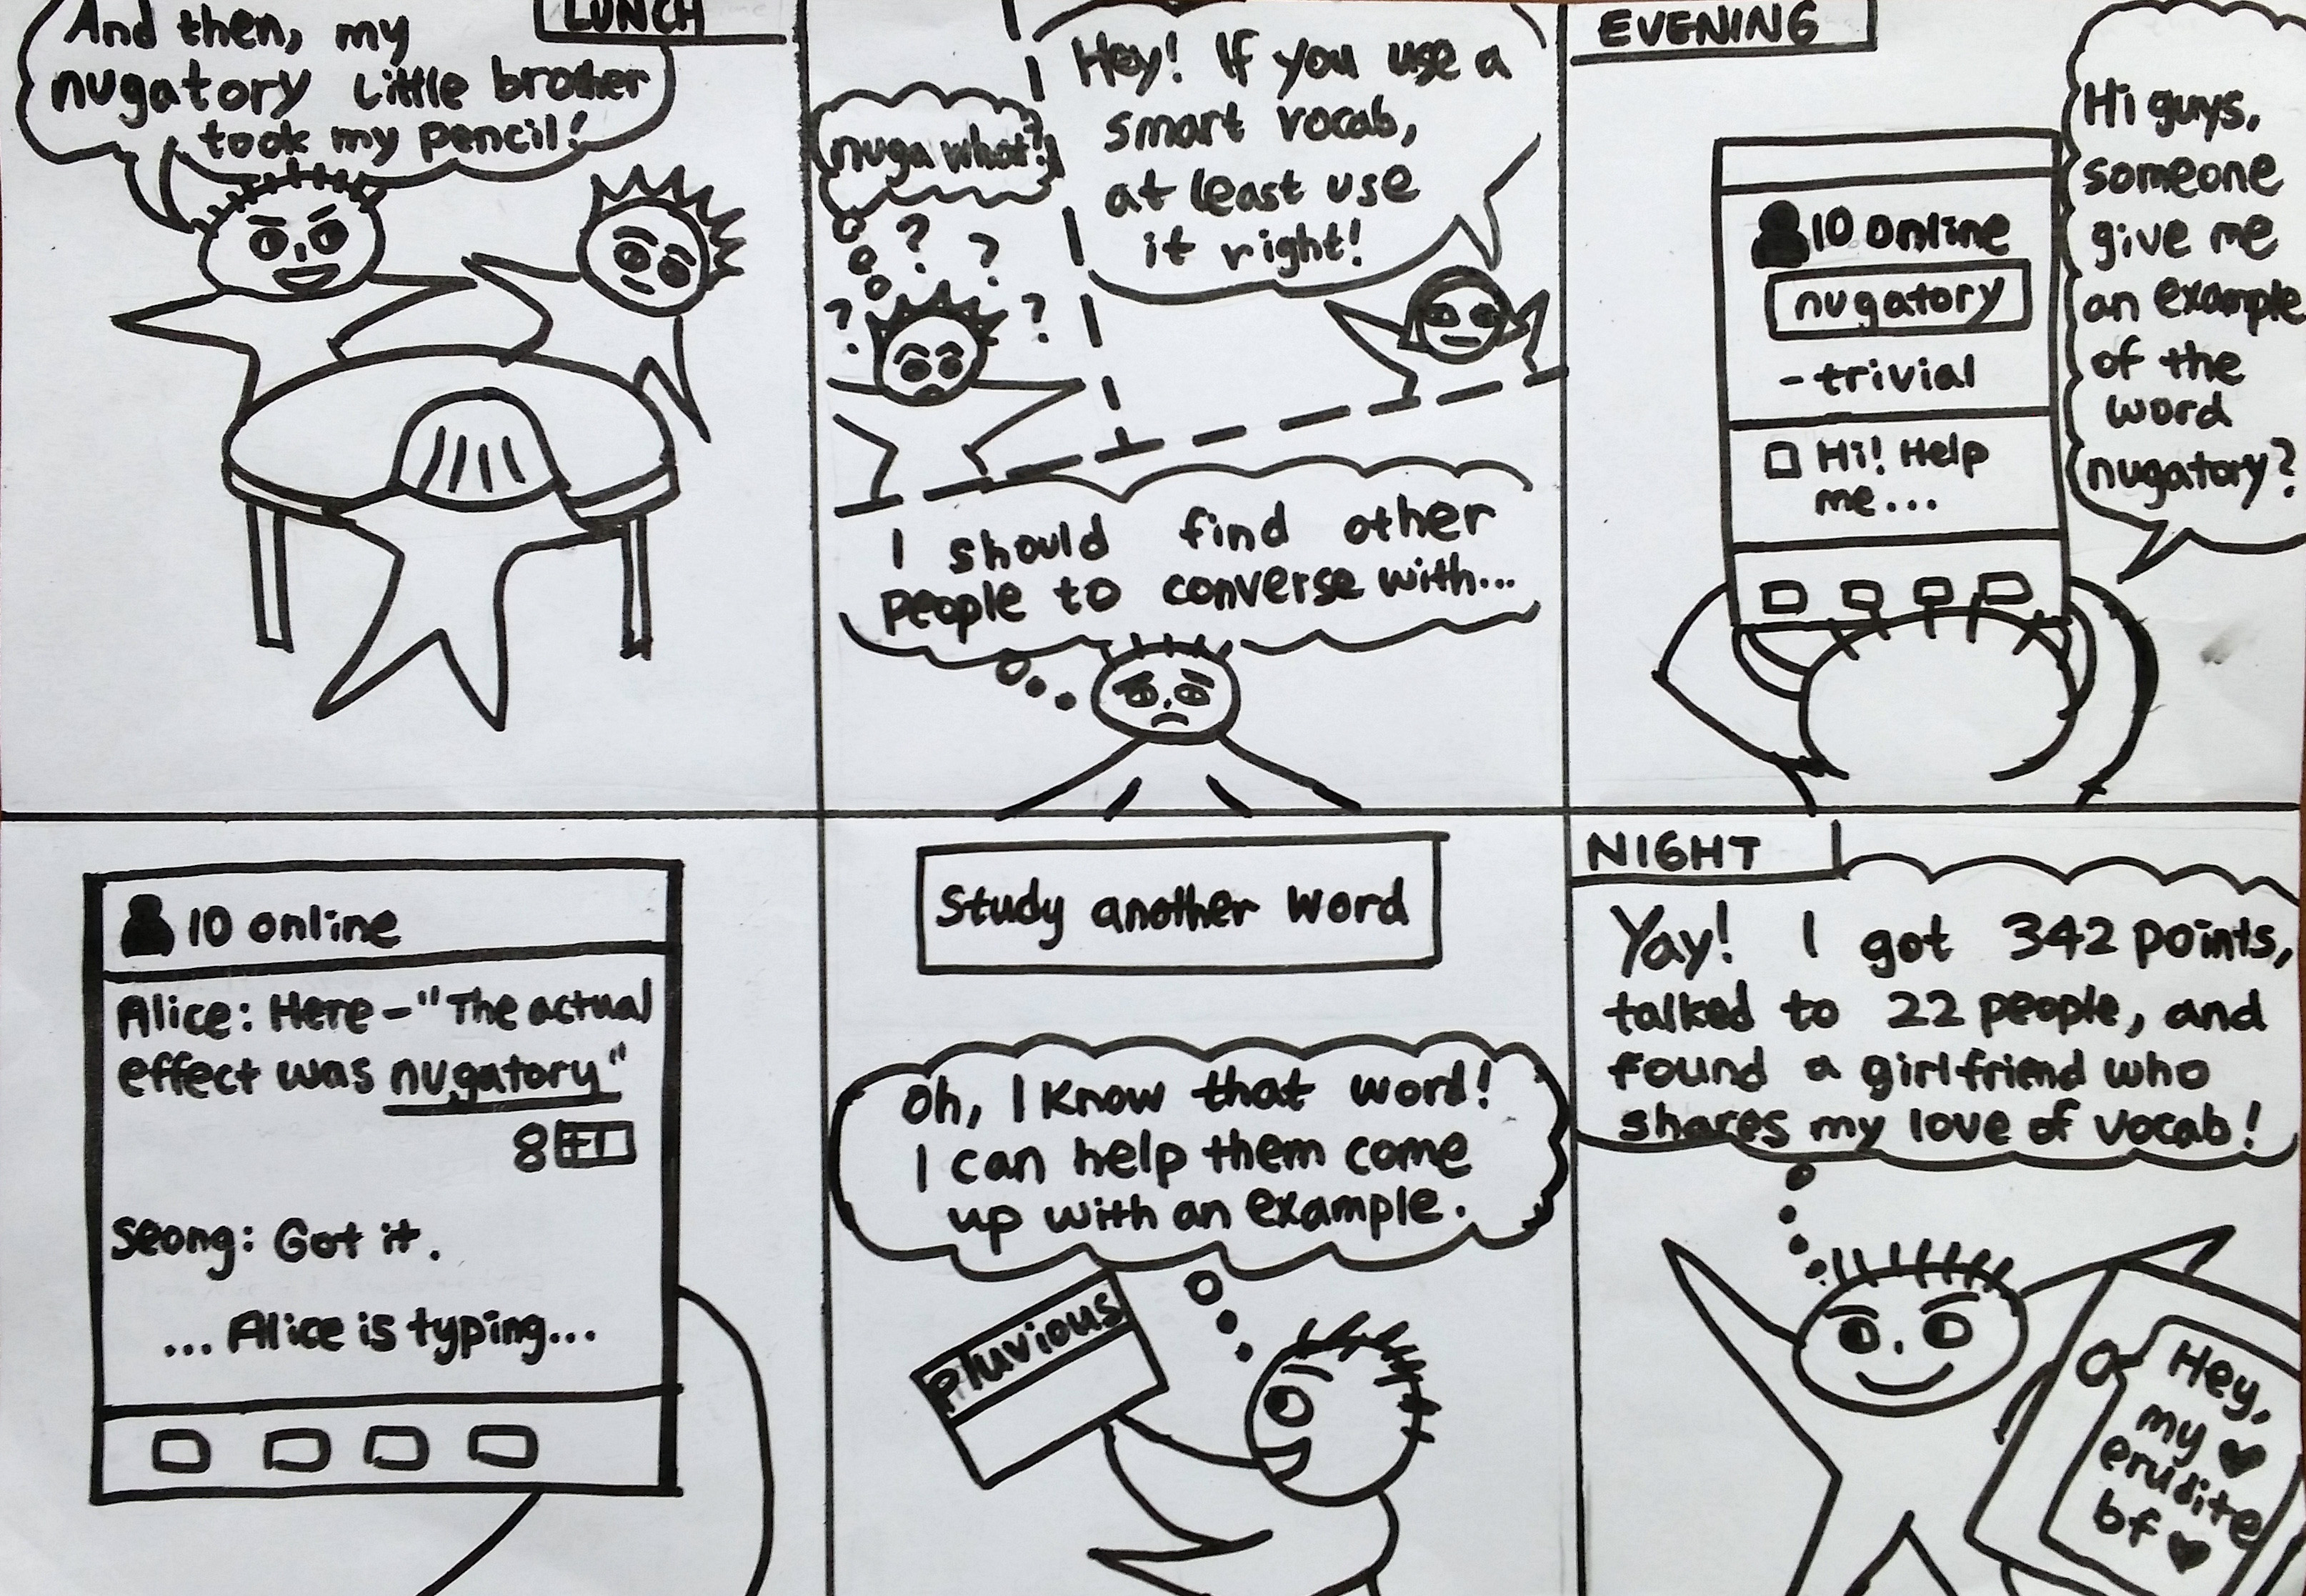 LUNCH
And then, my
nugatory little brother
took my pencil!
nuga what?
? ? ? ?
Hey! If you use a
smart vocab,
at least use
it right!
I should find other
people to converse with...
EVENING
10 online
nugatory
- trivial
Hi! Help
me...
Hi guys,
someone
give me
an example
of the
word
nugatory?
10 online
Alice: Here - "The actual
effect was nugatory"
8 +1
Seong: Got it.
... Alice is typing...
Study another word
Oh, I know that word!
I can help them come
up with an example.
Pluvious
NIGHT
Yay! I got 342 points,
talked to 22 people, and
found a girlfriend who
shares my love of vocab!
Hey,
my ♥
erudite
bf ♥